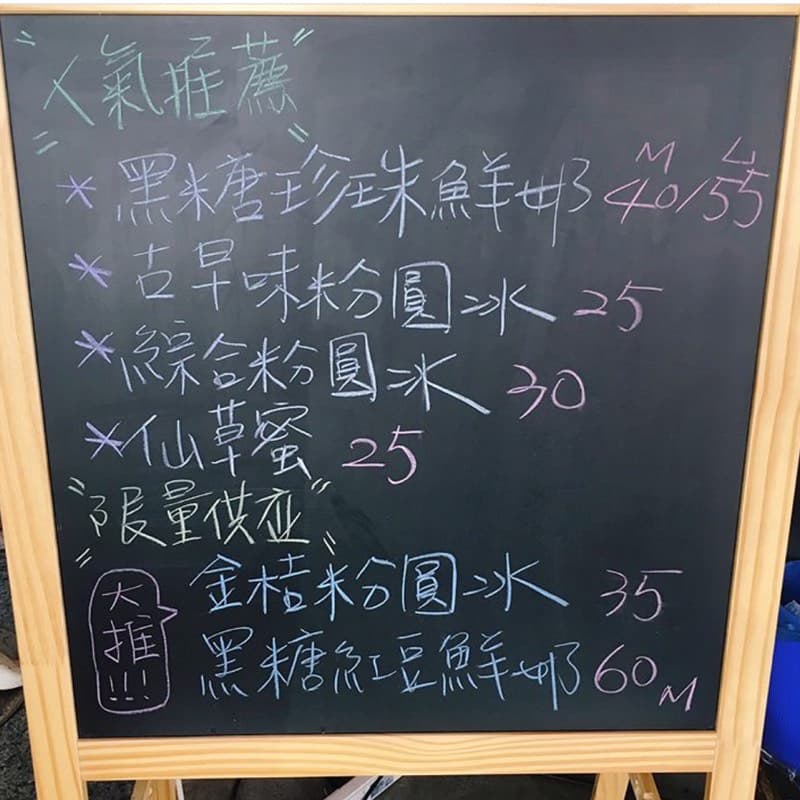 "人氣推薦"
* 黑糖珍珠鮮奶 M L 40/55
* 古早味粉圓冰 25
* 綜合粉圓冰 30
* 仙草蜜 25
"限量供应"
大推!!! 金桔粉圓冰 35
黑糖紅豆鮮奶 60 M